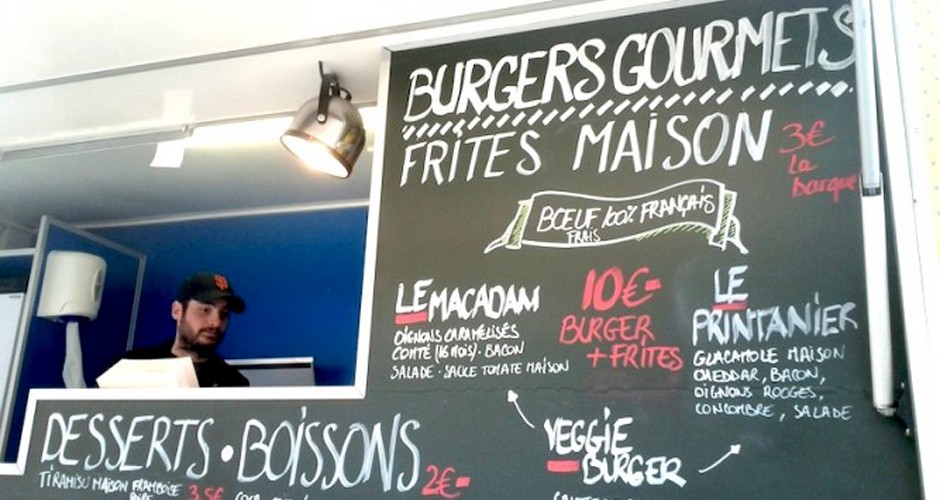 BURGERS GOURMETS
FRITES MAISON
3€
La
barque
BŒUF 100% FRANÇAIS
FRAIS
LE MACADAM
OIGNONS CARAMÉLISÉS
COMTÉ (16 MOIS) · BACON
SALADE · SAUCE TOMATE MAISON
10€-
BURGER
+ FRITES
LE
PRINTANIER
GUACAMOLE MAISON
CHEDDAR, BACON,
OIGNONS ROUGES,
CONCOMBRE, SALADE
VEGGIE
BURGER
DESSERTS · BOISSONS
TIRAMISU MAISON FRAMBOISE
POIRE
3,5€
2€-
SF